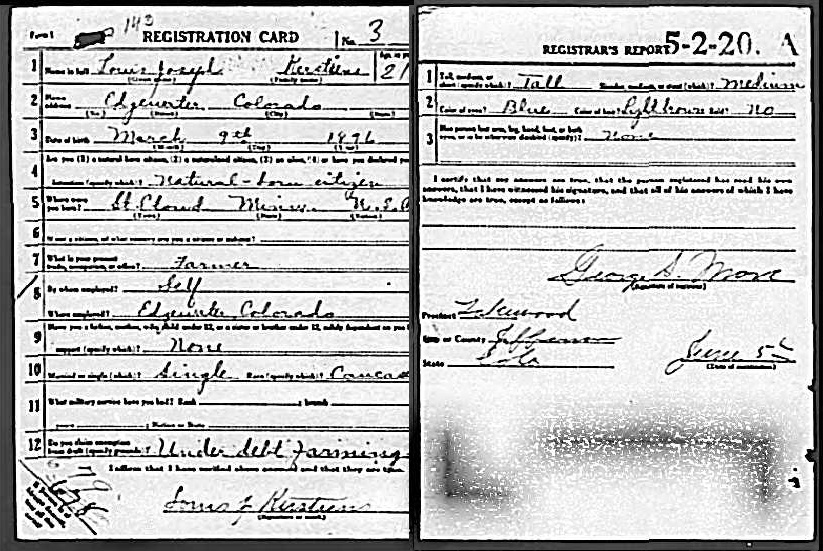 Form 1 143 REGISTRATION CARD No. 3
1 Name in full Louis Joseph Kerstiens Age, in yrs. 21
(Given name) (Family name)
2 Home address Edgewater Colorado
(No.) (Street) (City) (State)
3 Date of birth March 9th 1896
(Month) (Day) (Year)
4 Are you (1) a natural-born citizen, (2) a naturalized citizen, (3) an alien, (4) or have you declared your
intention (specify which)? Natural-born citizen
5 Where were you born? St. Cloud Minn. U.S.A
(Town) (State) (Nation)
6 If not a citizen, of what country are you a citizen or subject?
7 What is your present trade, occupation, or office? Farmer
8 By whom employed? Self
Where employed? Edgewater, Colorado
9 Have you a father, mother, wife, child under 12, or a sister or brother under 12, solely dependent on you
support (specify which)? None
10 Married or single (which)? Single Race (specify which)? Caucas
11 What military service have you had? Rank ; branch
years ; Nation or State
12 Do you claim exemption from draft (specify grounds)? Under debt farming
I affirm that I have verified above answers and that they are true.
Louis J Kerstiens
(Signature or mark)
REGISTRAR'S REPORT 5-2-20. A
1 Tall, medium, or short (specify which)? Tall Slender, medium, or stout (which)? Medium
2 Color of eyes? Blue Color of hair? Light brown Bald? No
3 Has person lost arm, leg, hand, foot, or both eyes, or is he otherwise disabled (specify)? None
I certify that my answers are true, that the person registered has read his own
answers, that I have witnessed his signature, and that all of his answers of which I have
knowledge are true, except as follows:
George S. More
(Signature of registrar)
Precinct
City or County Jefferson
State Colo June 5
(Date of registration)